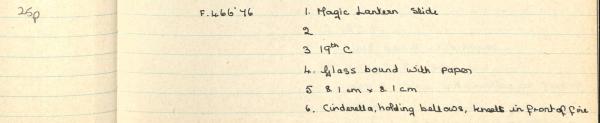 25p F.466'76 1. Magic Lantern Slide
2
3 19th C
4. Glass bound with paper
5 8.1cm x 8.1cm
6. Cinderella, holding bellows, kneels in front of fire